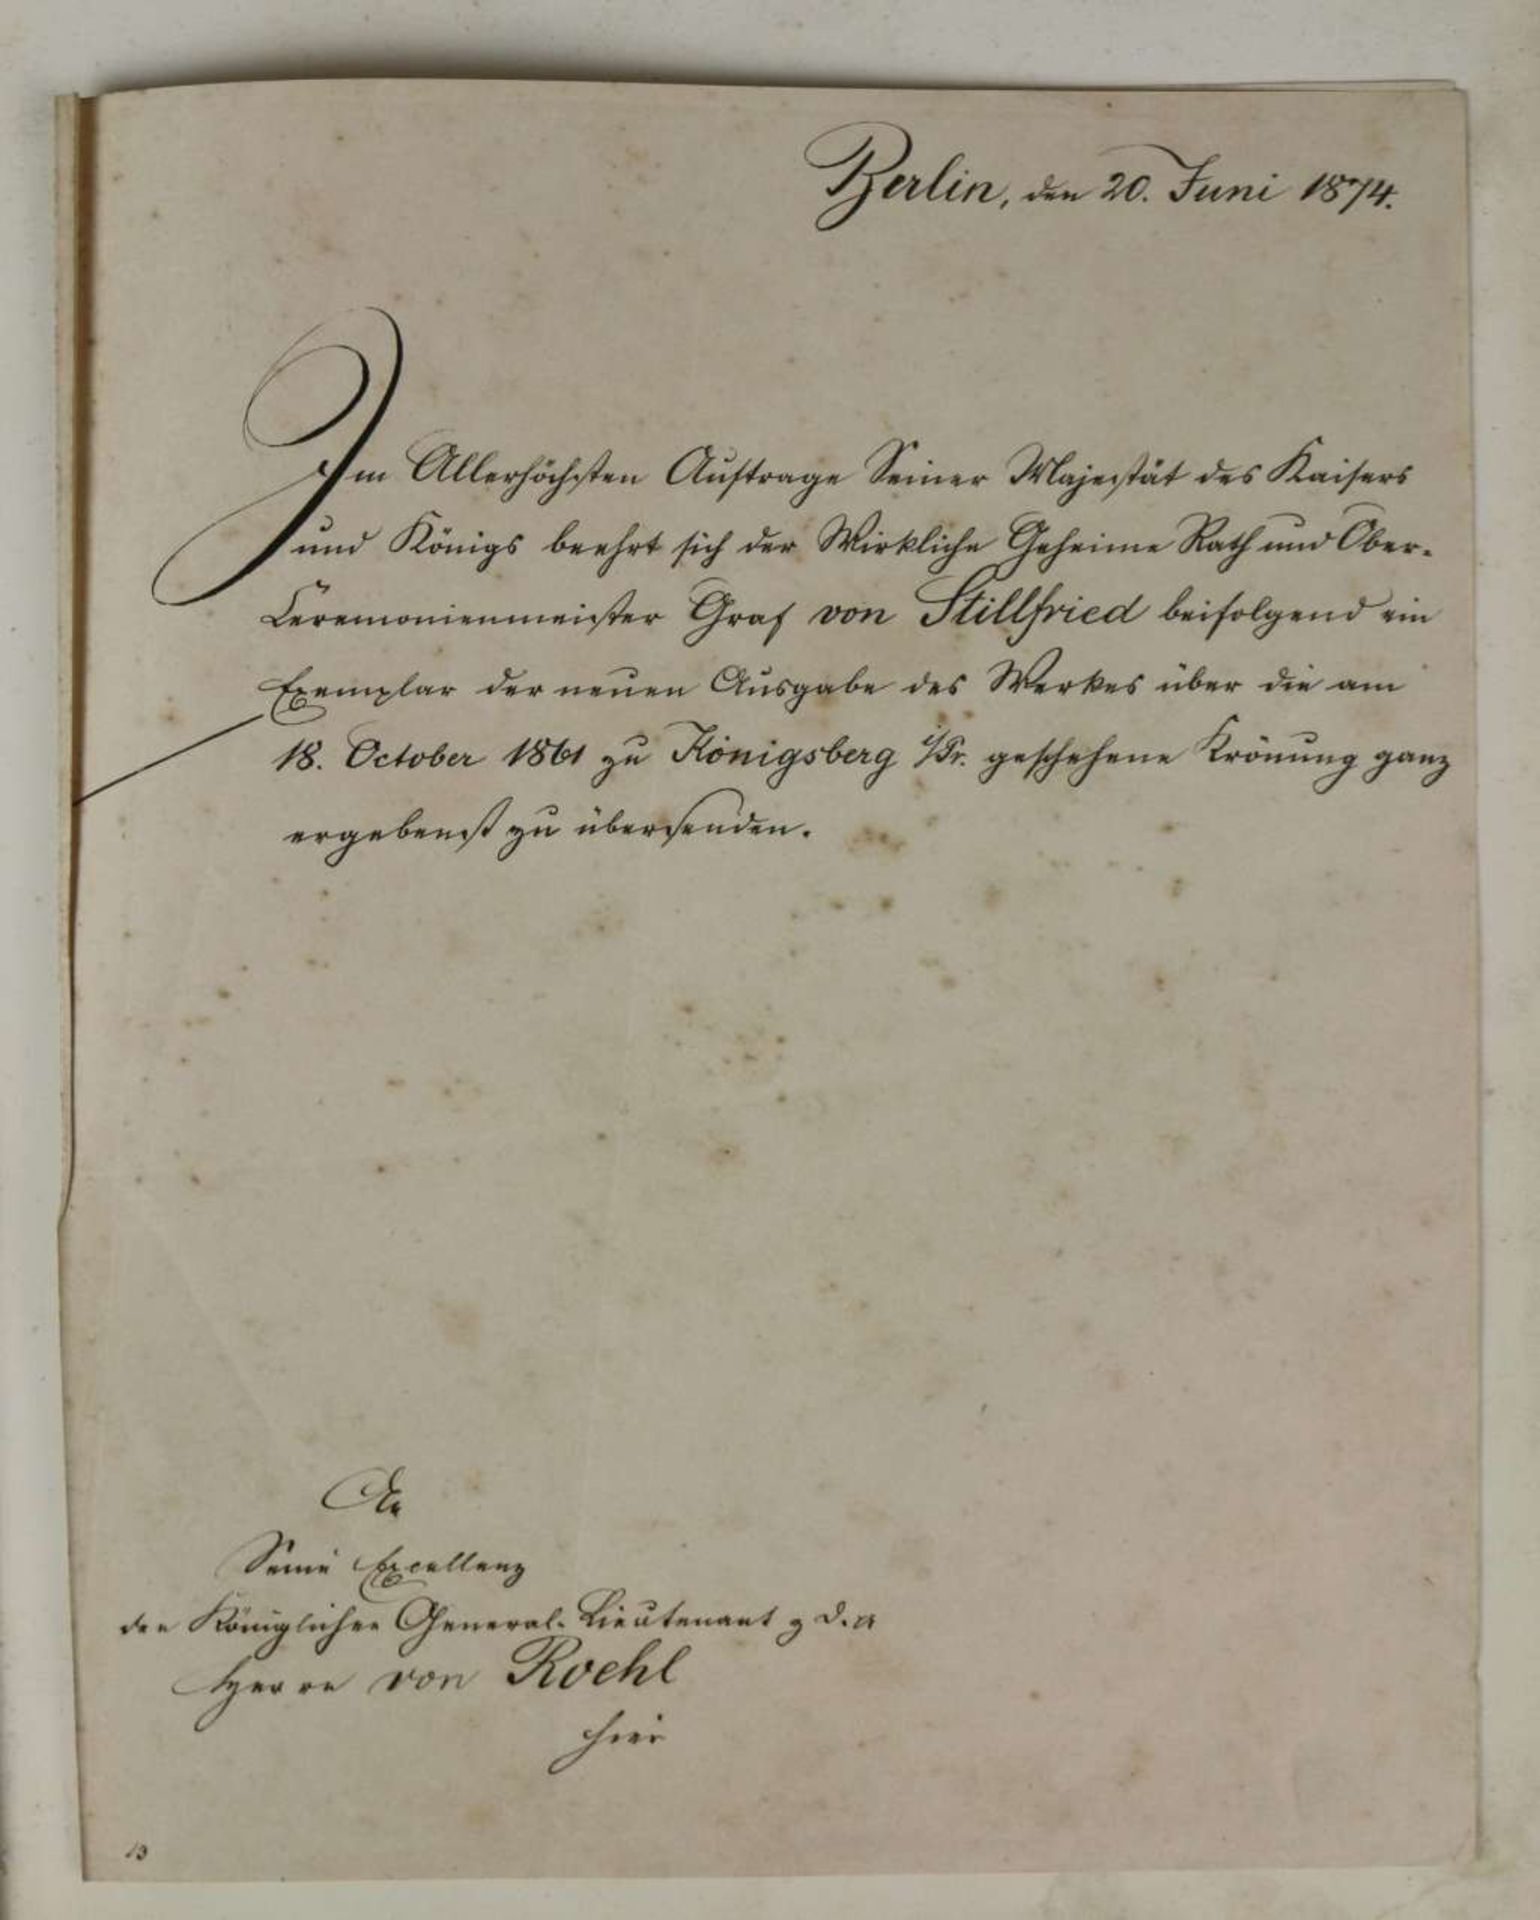 Berlin, den 20. Juni 1874.
Im Allerhöchsten Auftrage Seiner Majestät des Kaisers
und Königs beehrt sich der Wirkliche Geheime Rath und Ober-
Ceremonienmeister Graf von Stillfried beifolgend ein
Exemplar der neuen Ausgabe des Werkes über die am
18. October 1861 zu Königsberg i/Pr. geschehene Krönung ganz
ergebenst zu übersenden.
An
Seine Excellenz
den Königlichen General-Lieutenant z. D.
Herrn von Roehl
hier